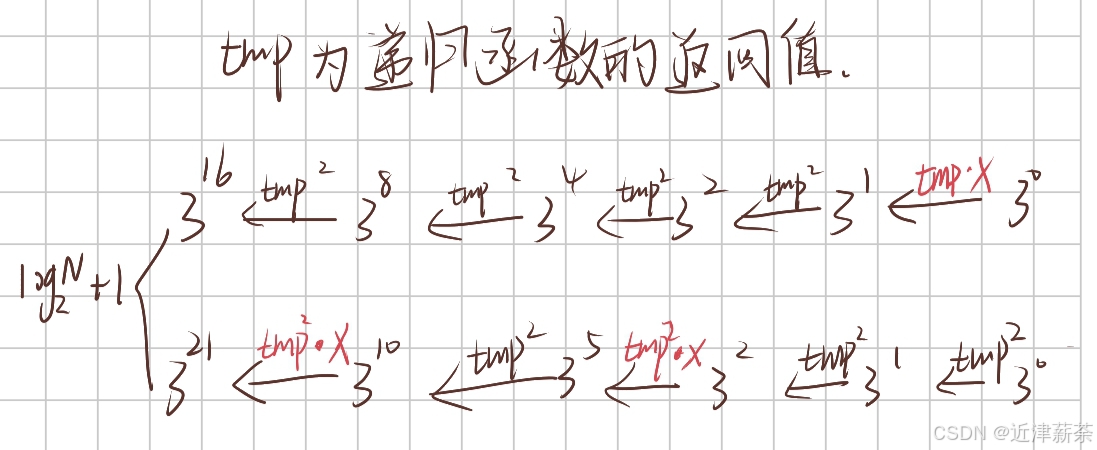 tmp为递归函数的返回值.
3^16 ←tmp^2 3^8 ←tmp^2 3^4 ←tmp^2 3^2 ←tmp^2 3^1 ←tmp·X 3^0
log_2^N+1
3^21 ←tmp^2·X 3^10 ←tmp^2 3^5 ←tmp^2·X 3^2 ←tmp^2 3^1 ←tmp^2 3^0
CSDN @近津薪荼